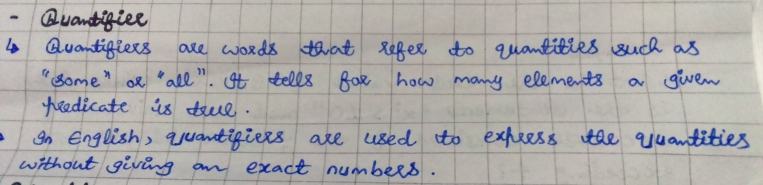 - Quantifier
↳ Quantifiers are words that refer to quantities such as
"some" or "all". It tells for how many elements a given
predicate is true.
In English, quantifiers are used to express the quantities
without giving an exact numbers.